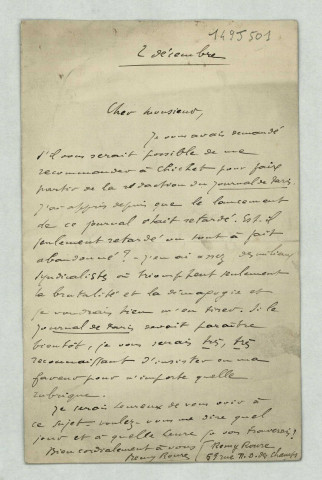 1495501
2 décembre
Cher monsieur,
Je vous avais demandé
s'il vous serait possible de me
recommander à Chichet pour faire
partie de la rédaction du Journal de Paris
J'ai appris depuis que le lancement
de ce journal était retardé. Est-il
seulement retardé ou tout à fait
abandonné? - J'en ai assez des milieux
syndicalistes où triomphent seulement
la brutalité et la démagogie et
je voudrais bien m'en tirer. Si le
Journal de Paris devait paraître
bientôt, je vous serais très, très
reconnaissant d'insister en ma
faveur pour n'importe quelle
rubrique.
Je serais heureux de vous voir à
ce sujet voulez-vous me dire quel
jour et à quelle heure je vous trouverais?
Bien cordialement à vous
Remy Roure
Remy Roure
59 rue N.D. des Champs